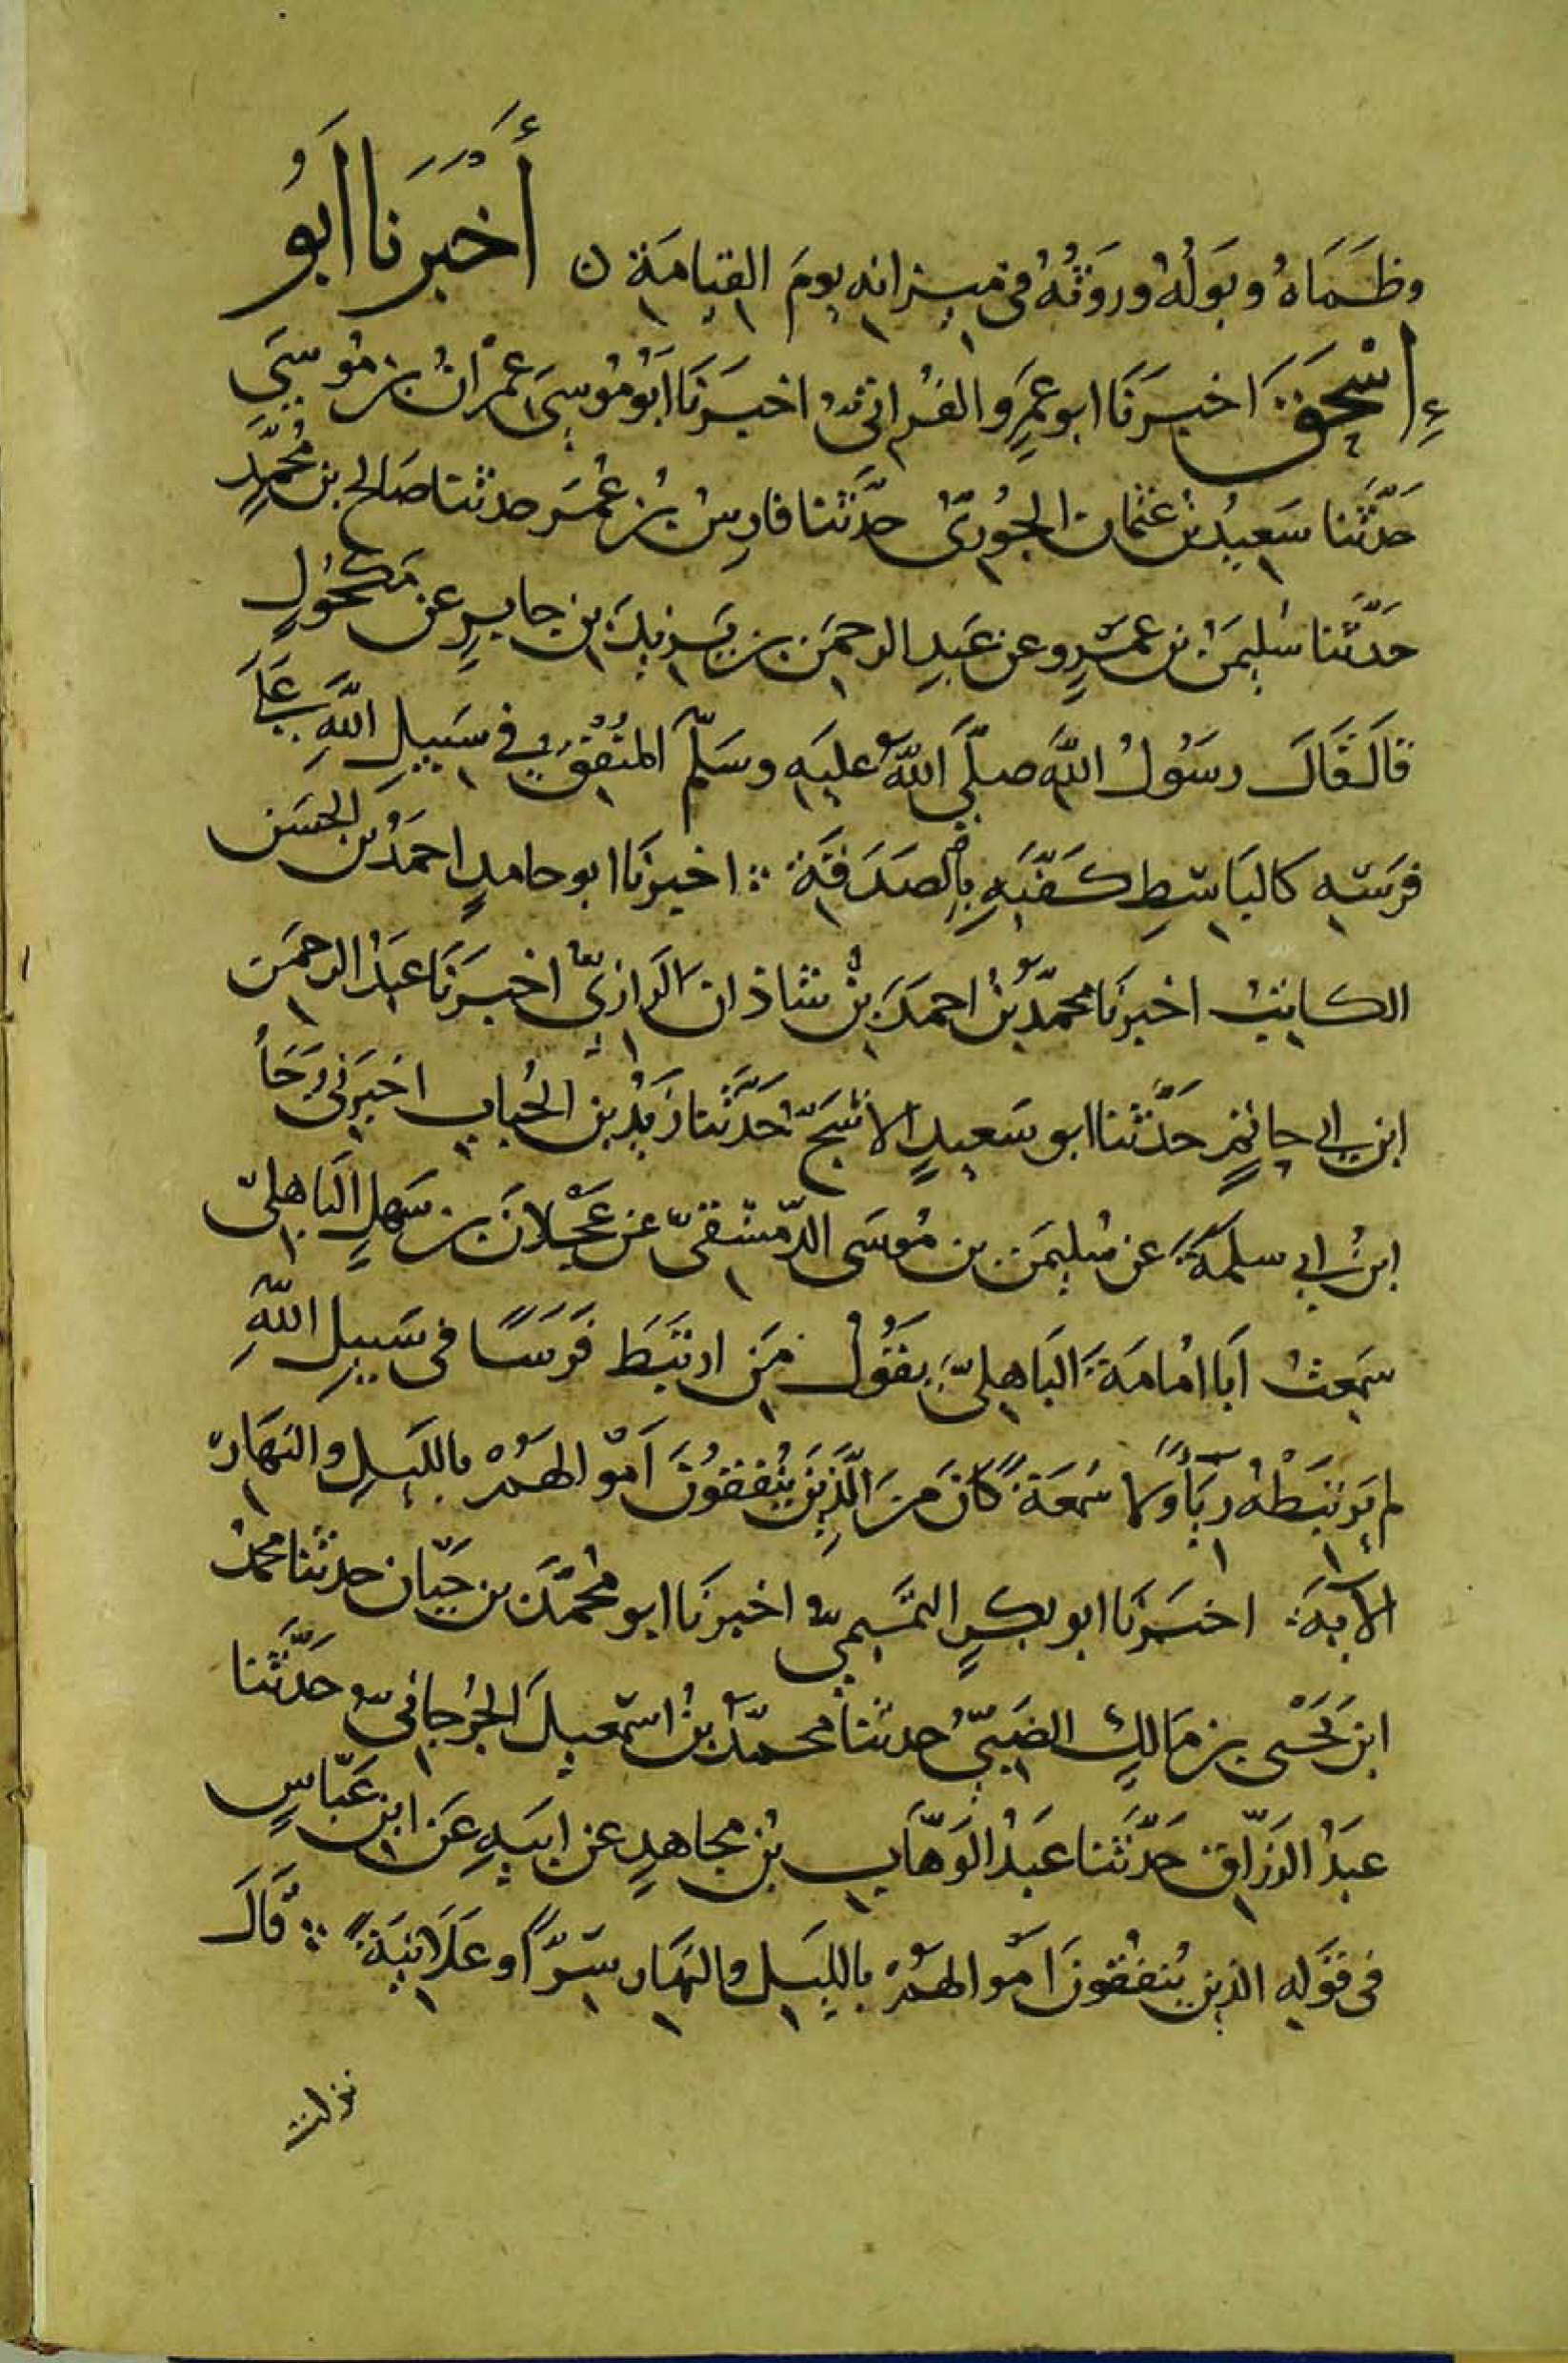 وظَمَاهُ وبَولُهُ ورَوَثُهُ فى ميزانه يومَ القيامَةِ ن أَخْبَرَنا ابُو
إِسْحَقَ اخبرَنَا ابو عَمرٍو الفُراتىُّ اخبرَنَا ابُو مُوسَى عِمْرانُ بن مُوسَى
حَدَّثَنا سَعيدُ بنُ عثمان الجُورىُّ حدَّثَنا فارِسُ بنُ عُمَر حدثنا صَالح بن مُحَمَّدٍ
حَدَّثَنا سُليمَنُ بن عَمْرٍو عن عَبدِ الرحمَن بن يَزيدَ بنِ جابرٍ عن مَكْحُولٍ
قالَ قَالَ رسَوُلُ اللَّهِ صلَّى اللهُ عليَه وسَلَّم المُنفِقُ فى سَبيلِ اللَّهِ عَلَى
فَرسِهِ كالبَاسِطِ كَفَّيَهِ بِالصَدَقَةِ ∴ اخبرنَا ابو حامدٍ احمَدُ بن الحسَن
الكاتبُ اخبرنَا محمّدُ بنُ احمَدَ بنِ شاذان الرازىُّ اخبرَنَا عَبدُ الرحمَن
ابن ابى حاتمٍ حَدَّثَنا ابو سَعيدٍ الاشجُّ حَدَّثَنا زَيْدُ بن الحُبابِ اخبَرنى رَجَأُ
ابنُ ابى سلمَةَ عن سُليمَن بن مُوسَى الدِّمشقىّ عن عَجْلانَ بن سَهلٍ البَاهلىّ
سَمِعتُ ابَا امُامَةَ البَاهِلىَّ يَقوُلُ مَن ارتبَطَ فَرَسًا فى سَبيلِ اللَّهِ
لم يَرتَبَطْهُ ريَأً ولا سُمعَةً كانَ مِنَ الَّذِينَ يُنفقوُنَ اَمْوالهُمْ بالليَلِ والنهَار
الآيةَ اخبَرنَا ابو بكرٍ التمَيمىُّ اخبرنَا ابو مُحمَّد بن حَيّان حدثنا محمدُ
ابن يَحْيى بن مَالِكٍ الضَبىُّ حدثنا محمّدُ بنُ اسمعيلَ الجُرجانىُّ حَدَّثَنا
عبَدُ الرَزّاق حَدَّثَنا عَبدُ الوَهَّابِ بنُ مجاهدٍ عن ابيَهِ عَن ابنِ عَبّاسٍ
فى قَولِهِ الذين يُنفقُونَ اَمْوالهُمْ بالليَلِ والنهَار سِرّاً وعَلَانيَةً ∴ قَالَ
نزلت